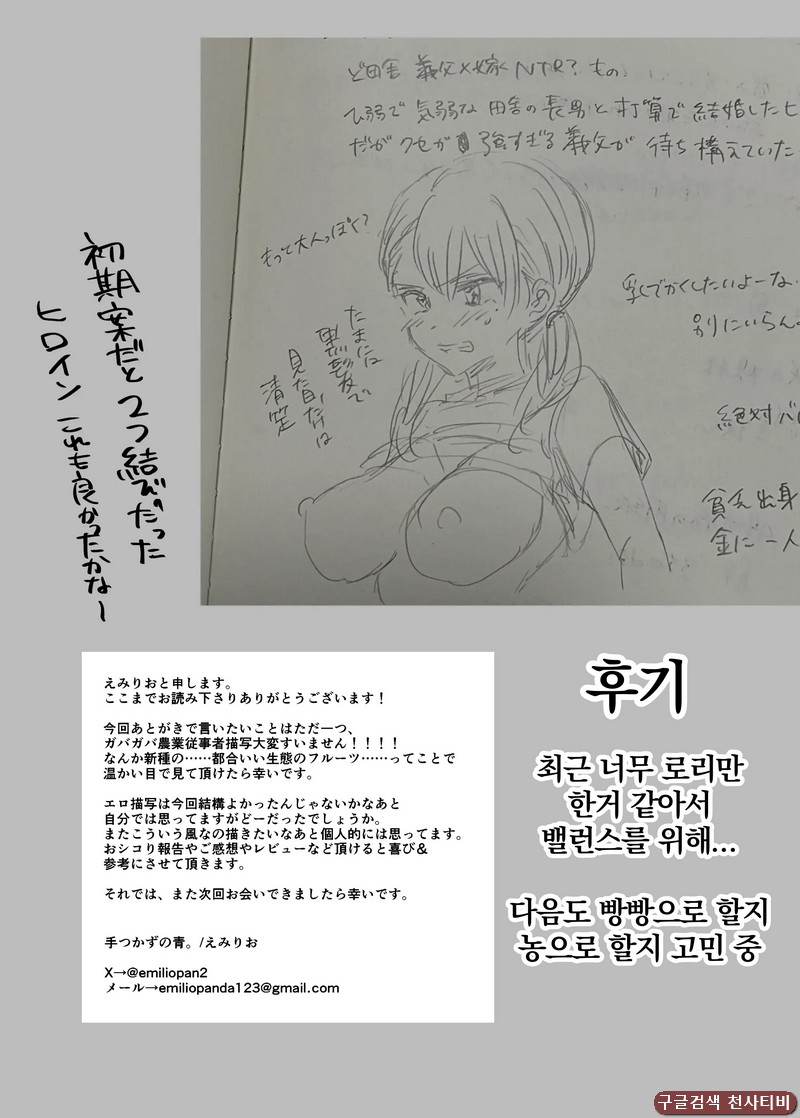 ど田舎 義父×嫁 NTR? もの
ひ弱で 気弱な 田舎の長男と 打算で 結婚したヒ
だがクセが強すぎる義父が 待ち構えていた
もっと大人っぽく?
乳でかくしたいよーな
別にいらん
たまには
黒髪で
見た目だけは
清楚
絶対バ
貧乏出身
金に一人
初期案だと2つ結びだった
ヒロインこれも良かったかなー
えみりおと申します。
ここまでお読み下さりありがとうございます!
今回あとがきで言いたいことはただ一つ、
ガバガバ農業従事者描写大変すいません!!!!
なんか新種の……都合いい生態のフルーツ……ってことで
温かい目で見て頂けたら幸いです。
エロ描写は今回結構よかったんじゃないかなあと
自分では思ってますがどーだったでしょうか。
またこういう風なの描きたいなあと個人的には思ってます。
おシコり報告やご感想やレビューなど頂けると喜び&
参考にさせて頂きます。
それでは、また次回お会いできましたら幸いです。
手つかずの青。/えみりお
X→@emiliopan2
メール→emiliopanda123@gmail.com
후기
최근 너무 로리만
한거 같아서
밸런스를 위해...
다음도 빵빵으로 할지
농으로 할지 고민 중
구글검색 천사티비